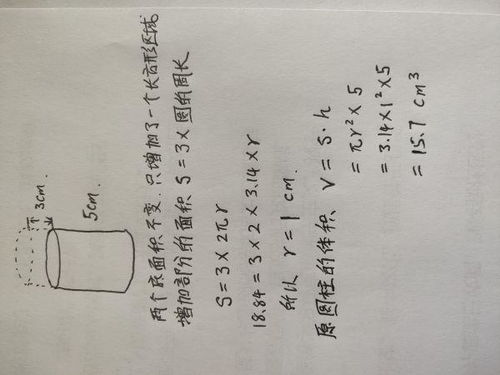 3cm.
5cm.
两个底面积不变.只增加了一个长方形区域.
增加部分的面积 S=3×圆的周长
S=3×2πr
18.84=3×2×3.14×r
所以 r=1 cm.
原圆柱的体积 V=S·h
=πr²×5
=3.14×1²×5
=15.7 cm³